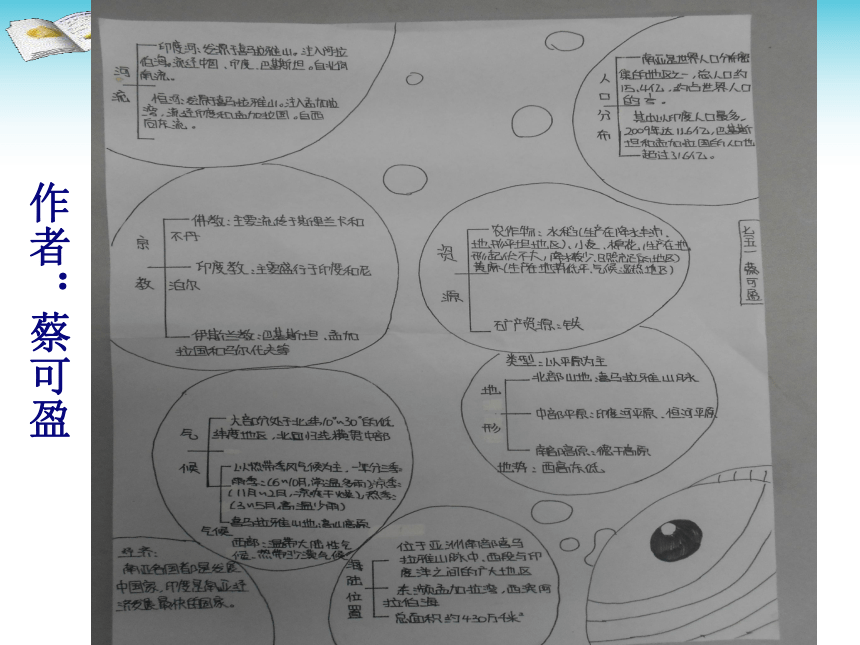 作者：蔡可盈
河流
印度河：发源于喜马拉雅山。注入阿拉
伯海。流经中国、印度、巴基斯坦。自北向
南流。
恒河：发源于喜马拉雅山。注入孟加拉
湾，流经印度和孟加拉国。自西
向东流。
人口分布
南亚是世界人口分布密
集的地区之一，总人口约
15.4亿，约占世界人口
的
其中以印度人口最多，
2009年达11.6亿，巴基斯
坦和孟加拉国的人口也
超过3.6亿。
宗教
佛教：主要流传于斯里兰卡和
不丹
印度教：主要盛行于印度和尼
泊尔
伊斯兰教：巴基斯坦、孟加
拉国和马尔代夫等
资源
农作物：水稻(生产在降水丰沛、
地形平坦地区)、小麦、棉花，(生产在地
形起伏不大，降水较少，日照充足的地区)
黄麻(生产在地势低平，气候湿热地区)
矿产资源：铁
七五一 蔡可盈
地形
类型：以平原为主
北部山地：喜马拉雅山脉
中部平原：印度河平原、恒河平原
南部高原：德干高原
地势：西高东低
气候
大部分处于北纬10°~30°的低
纬度地区，北回归线横贯中部
以热带季风气候为主，一年分三季：
雨季：(6~10月，高温多雨)凉季：
(11月~2月，凉爽干燥)，热季：
(3~5月，高温少雨)
喜马拉雅山地：高山高原
气候
西部：温带大陆性气
候、热带沙漠气候
海陆位置
位于亚洲南部喜马
拉雅山脉中、西段与印
度洋之间的广大地区
东濒孟加拉湾，西滨阿
拉伯海
总面积约430万千米²
南亚各国都是发展
中国家，印度是南亚经
济发展最快的国家。